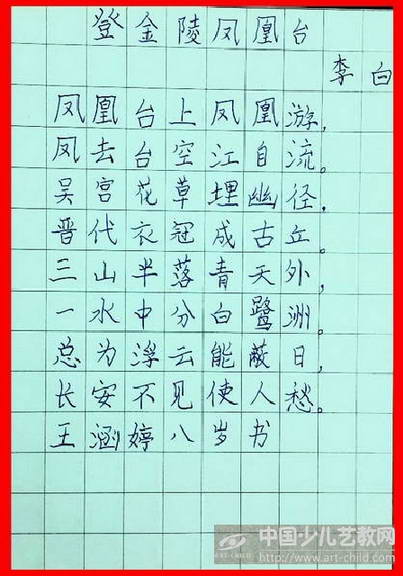 登金陵凤凰台
李白
凤凰台上凤凰游,
凤去台空江自流。
吴宫花草埋幽径,
晋代衣冠成古丘。
三山半落青天外,
一水中分白鹭洲。
总为浮云能蔽日,
长安不见使人愁。
王涵婷八岁书
中国少儿艺教网
ART-CHILD
http://www.art-child.com